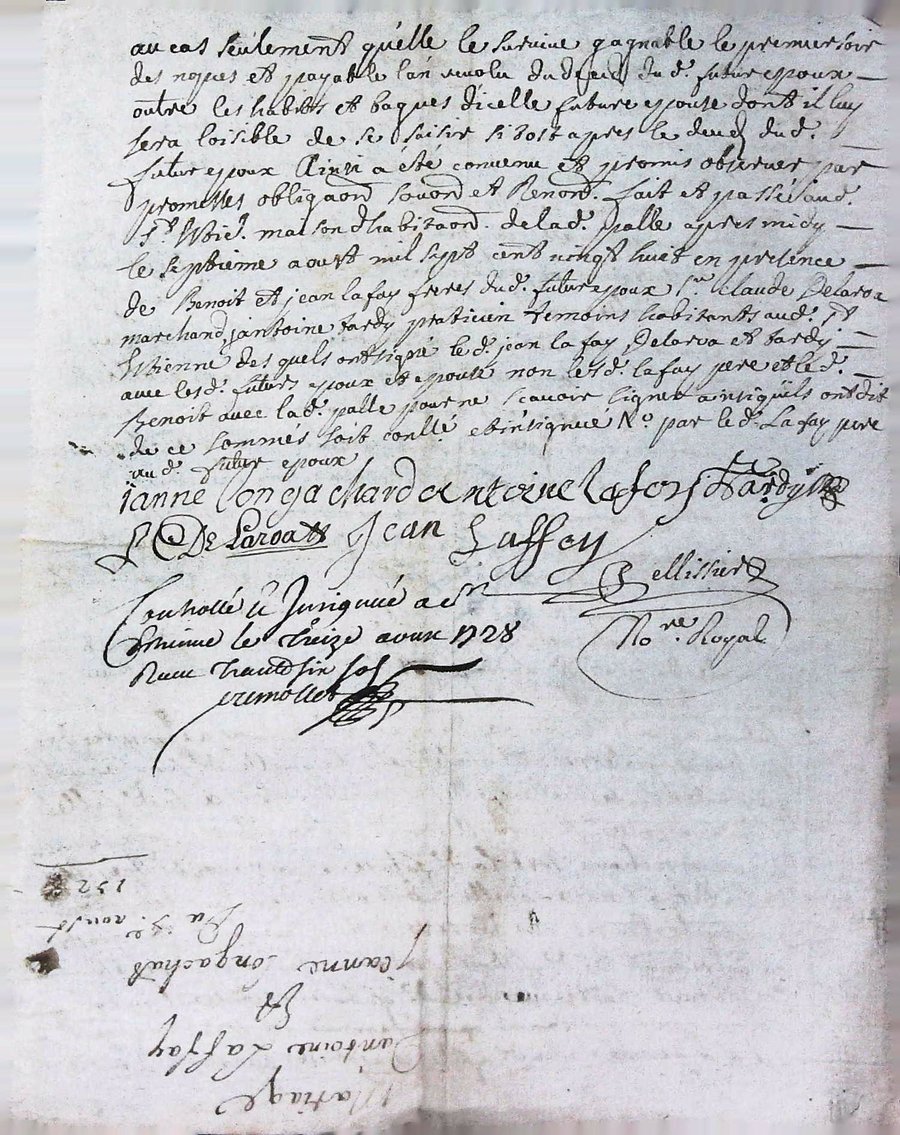 au cas seulement quelle le survive gagnable le premier soir
des nopces et payable lan revolu du deced du d. futur epoux
outre les habits et bagues dicelle future epouse dont il luy
sera loisible de se saisir sitost apres le deced du d.
futur epoux Ainsi a eté convenu et promis observer par
promesses obligaons et Renons. fait et passé aud.
St maison dhabitaon. de lad. palle apres midy
le septieme aoust mil sept cent vingt huit en presence
de Benoit et jean lafay freres du d. futur epoux Sr claude Delaroa
marchand, antoine tardy praticien temoins habitants aud. St
Etienne des quels ont signé le d. jean lafay, Delaroa et tardy
avec lesd. futurs epoux et epouse non lesd. lafay pere et led.
Benoit avec lad. palle pour ne scavoir signer ont dit
de ce sommés soit conllé et insignué par le d. Lafay pere
aud. futur epoux
janne Longachard antoine lafay Tardy
De Laroa Jean Laffay
Pellissier
No.re Royal
Controllé & Insignué a St
Estienne le treize aoust 1728
Receu six sols
Mariage
antoine Laffay
Et
jeanne Longachard
Du 7e. aoust